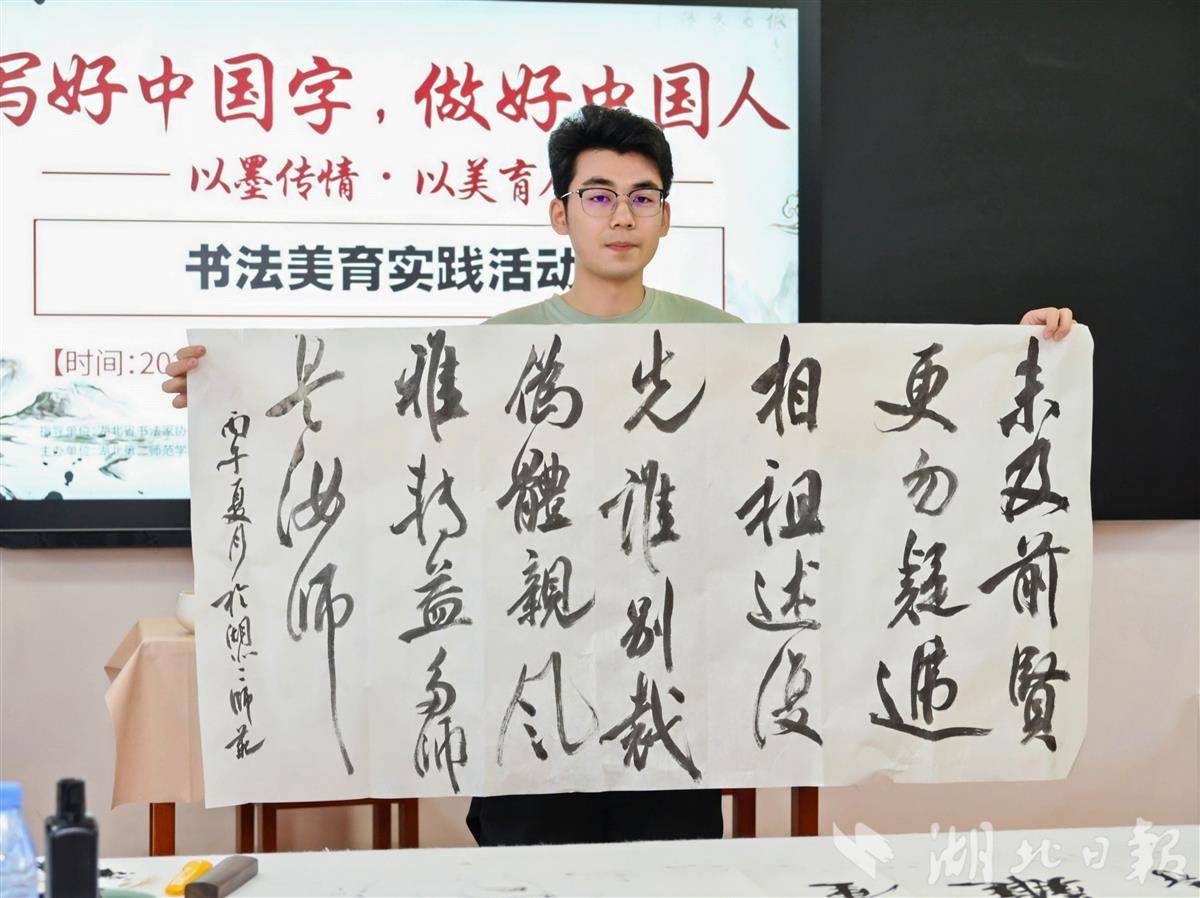 写好中国字，做好中国人
以墨传情·以美育人
书法美育实践活动
【时间:202
指导单位:湖北省书法家协
主办单位:湖北第二师范学
未及前賢
更勿疑遞
相祖述復
先誰别裁
偽體親風
雅轉益多師
是汝師
丙午夏月於湖北二師范
湖北日報